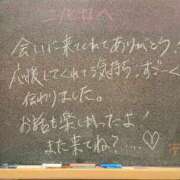 会いに来てくれてありがとう!
応援してくれてる気持ち、すごーく
伝わりました。
お話も楽しかったよ!
また来てね?....♡